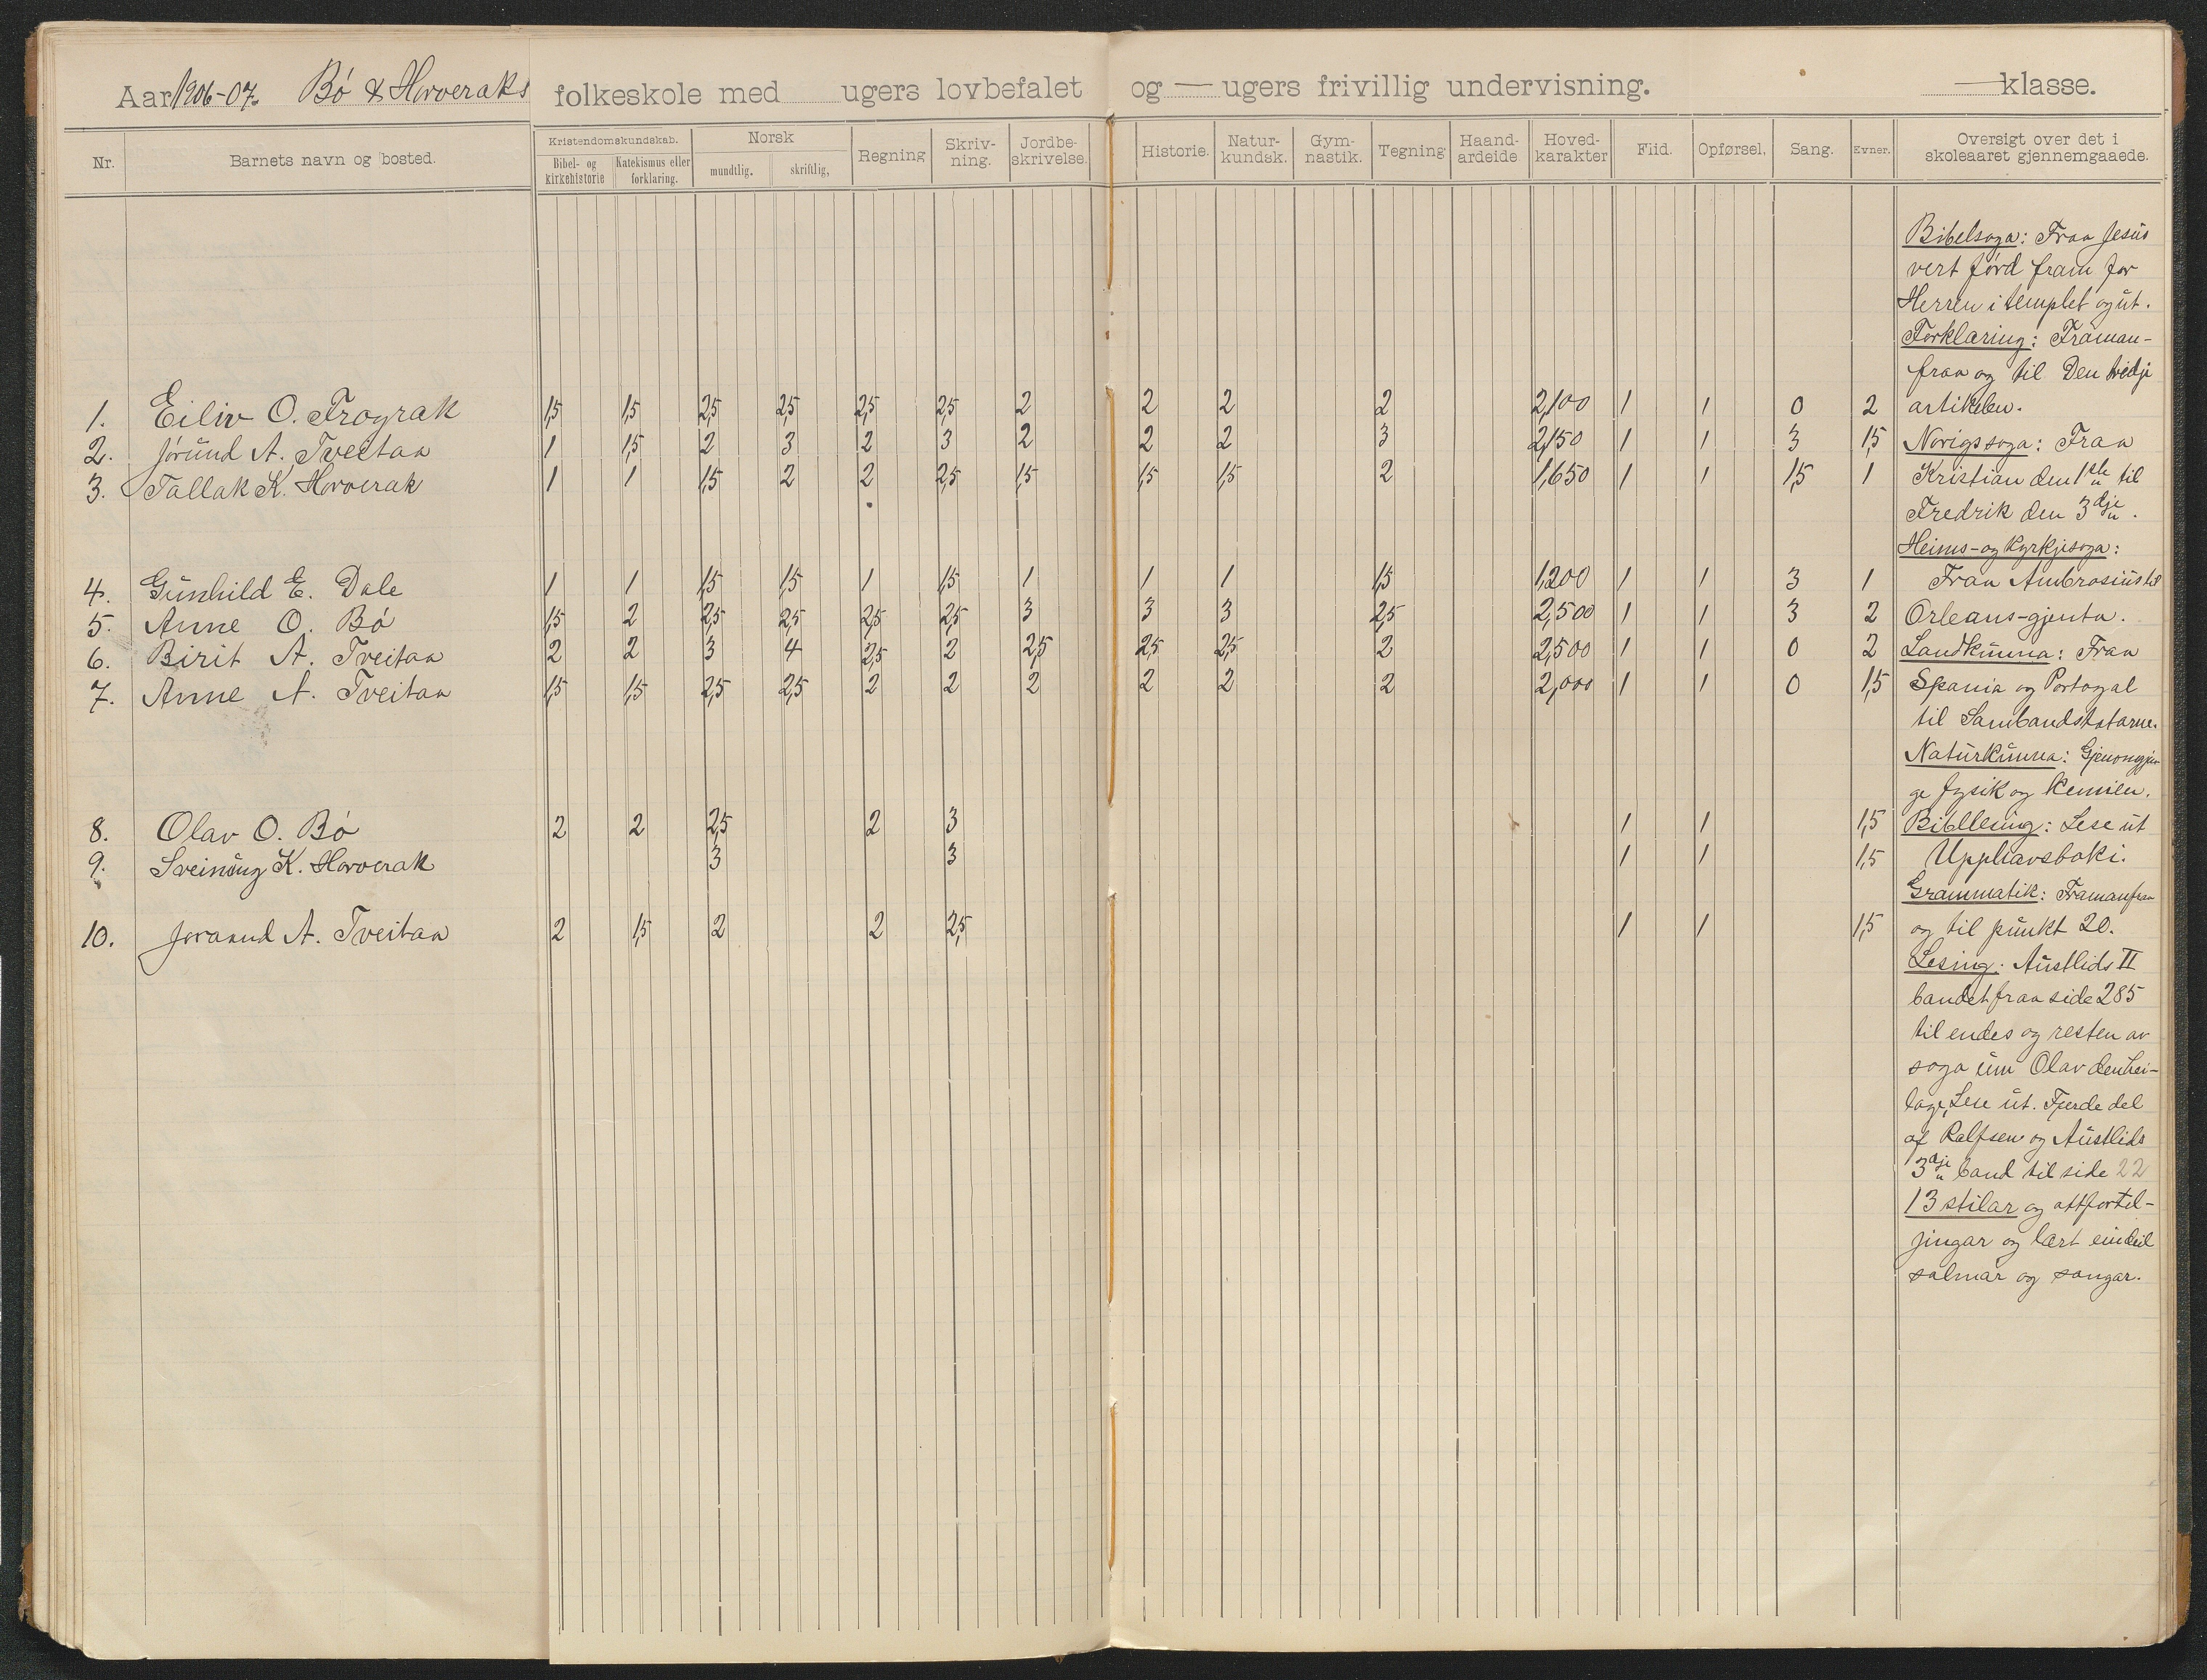 Aar 1906-07. Bø & Horveraks folkeskole med ugers lovbefalet og — ugers frivillig undervisning. — klasse.
Nr. Barnets navn og bosted. Kristendomskundskab. Bibel- og kirkehistorie Katekismus eller forklaring. Norsk mundtlig. skriftlig, Regning Skriv-ning. Jordbe-skrivelse. Historie. Natur-kundsk. Gym-nastik. Tegning Haand-arbeide Hoved-karakter Flid. Opførsel. Sang. Evner. Oversigt over det i skoleaaret gjennemgaaede.
1. Eiliv O. Trograk 1,5 1,5 2,5 2,5 2,5 2,5 2 2 2 2 2,100 1 1 0 2
2. Jørund A. Tveitan 1 1,5 2 3 2 3 2 2 2 3 2,150 1 1 3 1,5
3. Tallak K. Horverak 1 1 1,5 2 2 2,5 1,5 1,5 1,5 2 1,650 1 1 1,5 1
4. Gunhild E. Dale 1 1 1,5 1,5 1 1,5 1 1 1 1,5 1,200 1 1 3 1
5. Anne O. Bø 1,5 2 2,5 2,5 2,5 2,5 3 3 3 2,5 2,500 1 1 3 2
6. Birit A. Tveitan 2 2 3 4 2,5 2 2,5 2,5 2,5 2 2,500 1 1 0 2
7. Anne A. Tveitan 1,5 1,5 2,5 2,5 2 2 2 2 2 2 2,000 1 1 0 1,5
8. Olav O. Bø 2 2 2,5 2 3 1 1 1,5
9. Sveinung K. Horverak 3 3 1 1 1,5
10. Joraand A. Tveitan 2 1,5 2 2 2,5 1 1 1,5
Bibelsoga: Fraa Jesus
vert førd fram for
Herren i templet og ut.
Forklaring: Framan-
fraa og til Den tridje
artikelen.
Norigssoga: Fraa
Kristian den 1ste til
Fredrik den 3dje.
Heims- og Kyrkjesoga:
Fraa Ambrosius til
Orleans-gjenta.
Landkunna: Fraa
Spania og Portogal
til Sambandstatarne.
Naturkunna: Gjenomgjen-
ge fysik og kemien.
Bibellesing: Lese ut
Upphavsboki.
Grammatik: Framanfraa
og til punkt 20.
Lesing: Austlids II
bandet fraa side 285
til endes og resten av
soga um Olav den hei-
lage, Lese ut. Fjerde del
af Rolfsen og Austlids
3dje band til side 22
13 stilar og attfortel-
jingar og lært eindeil
salmar og songar.